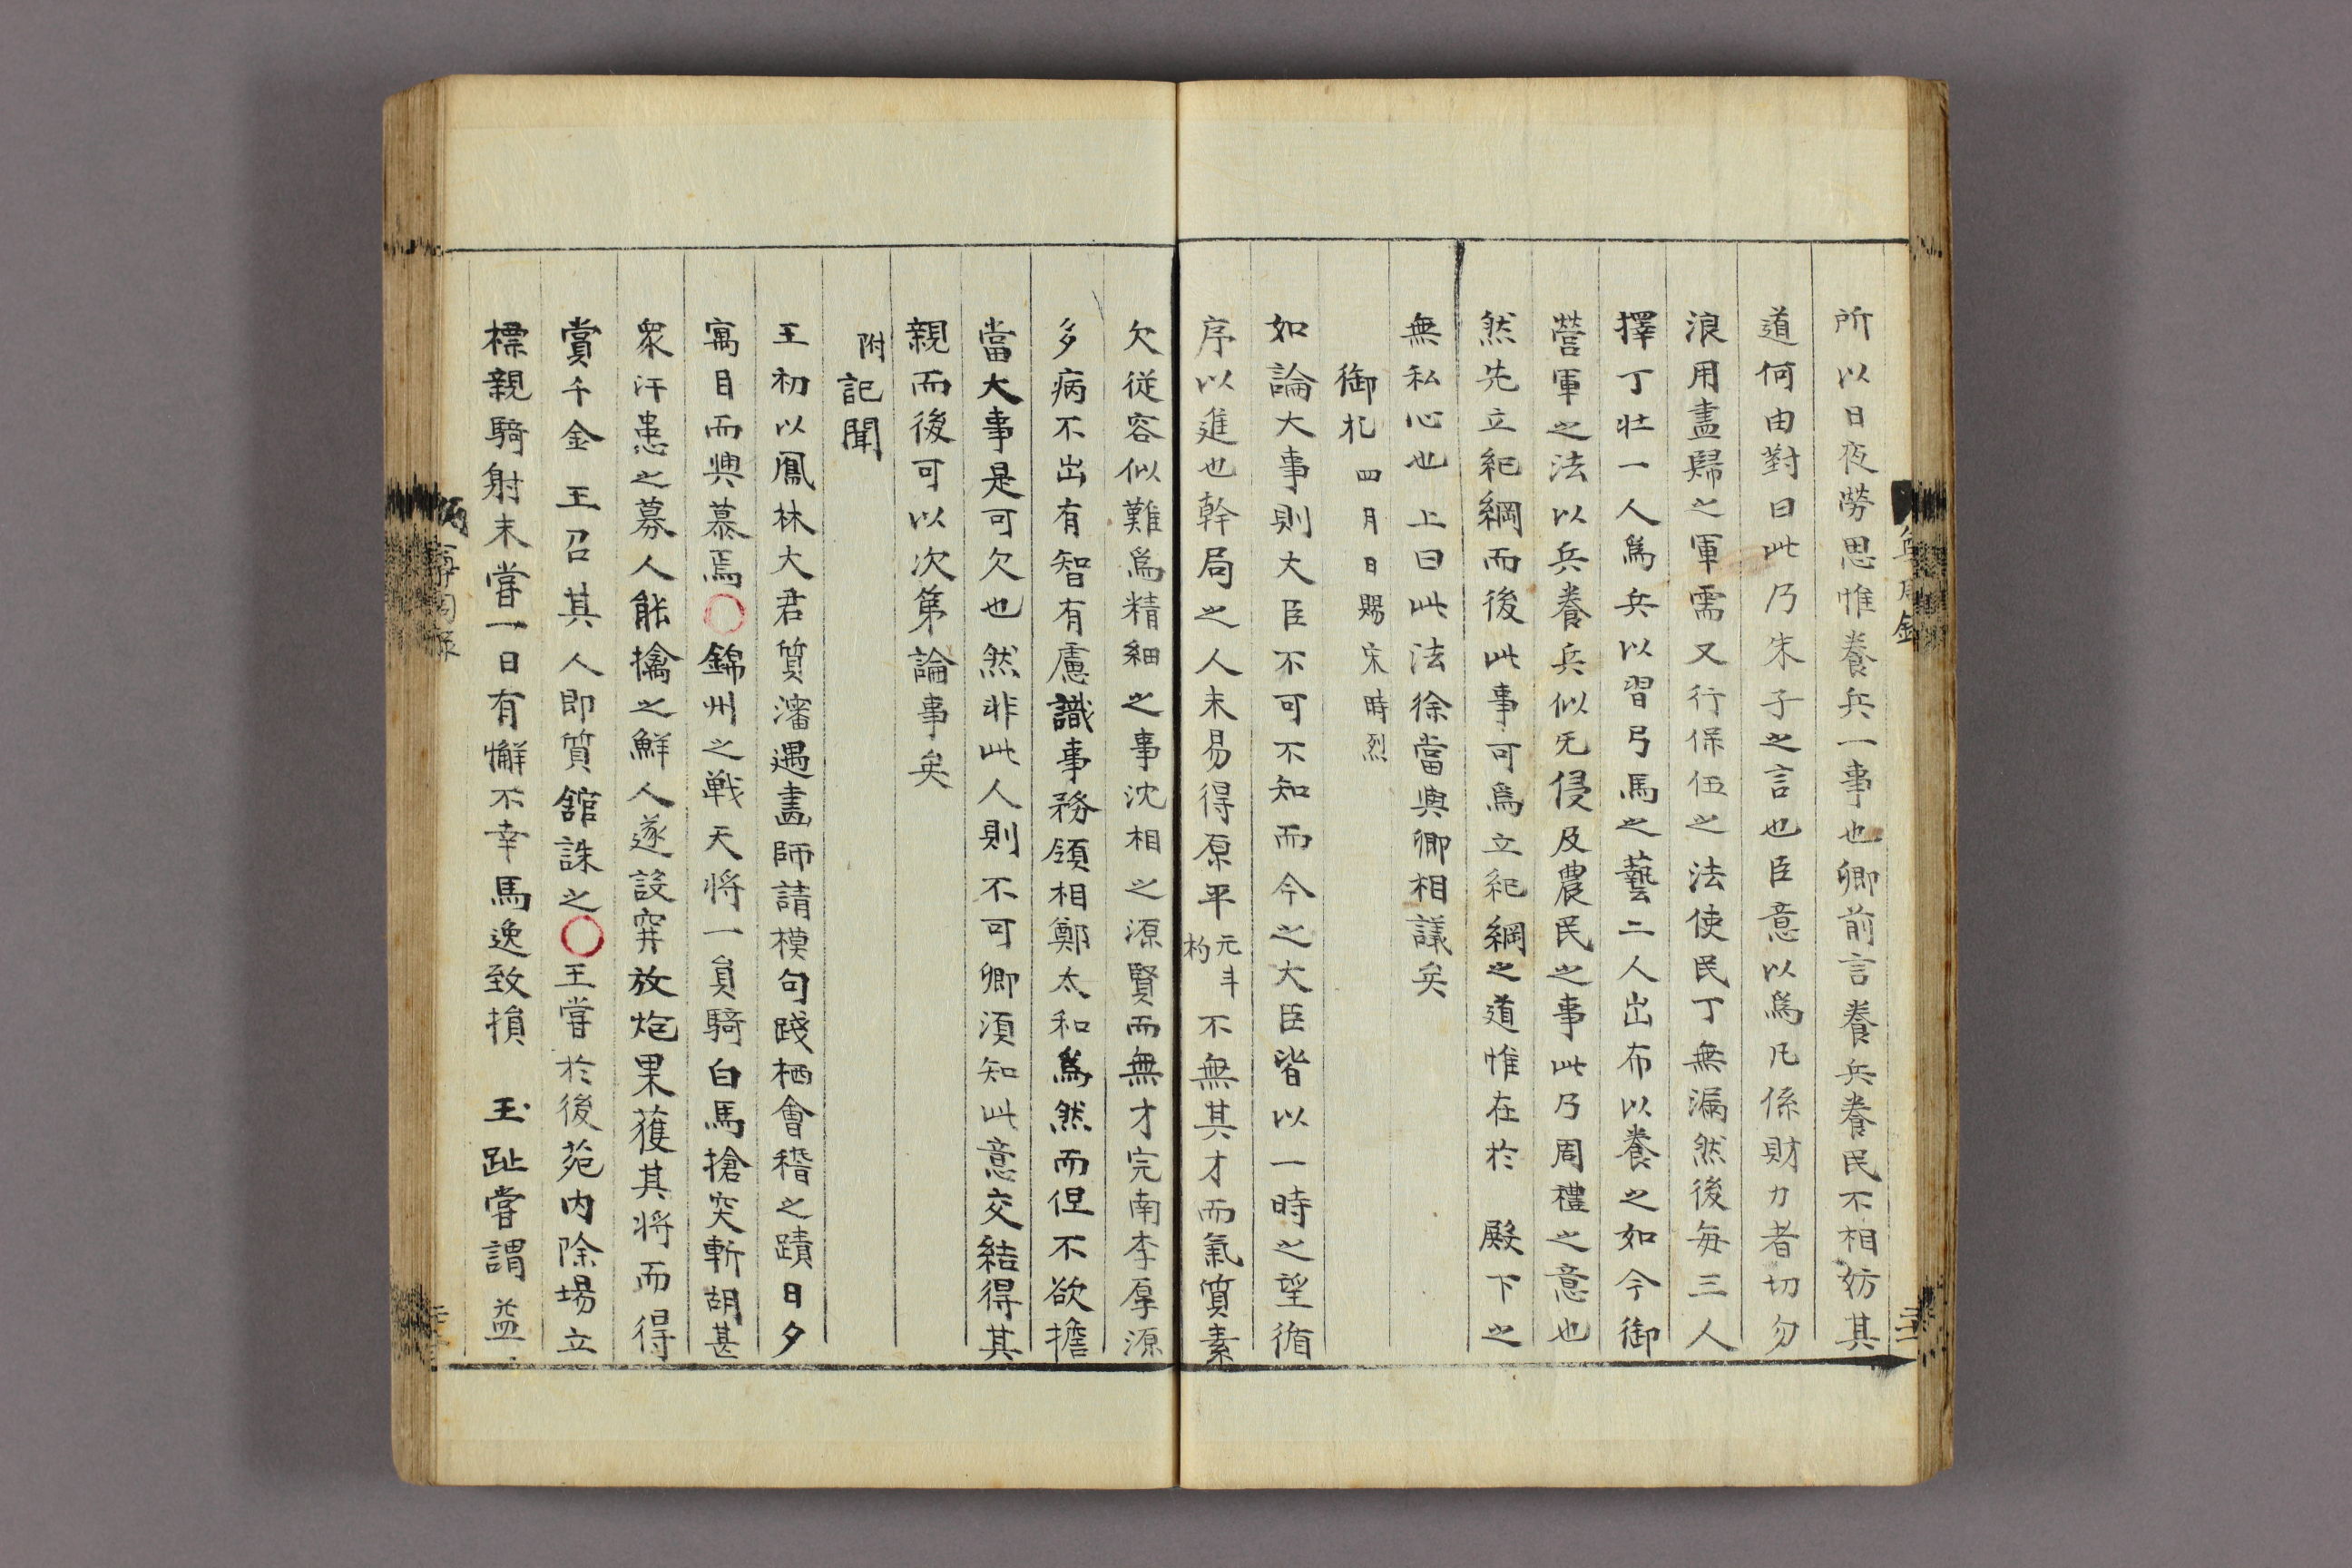 所以日夜勞思惟養兵一事也卿前言養兵養民不相妨其
道何由對曰此乃朱子之言也臣意以爲凡係財力者切勿
浪用盡歸之軍需又行保伍之法使民丁無漏然後每三人
擇丁壯一人爲兵以習弓馬之藝二人出布以養之如今御
營軍之法以兵養兵似无侵及農民之事此乃周禮之意也
然先立紀綱而後此事可爲立紀綱之道惟在於 殿下之
無私心也 上曰此法徐當與卿相議矣
御札 四月日賜宋時烈
如論大事則大臣不可不知而今之大臣皆以一時之望循
序以進也幹局之人未易得原平 元斗杓 不無其才而氣質素
欠從容似難爲精細之事沈相之源賢而無才完南李厚源
多病不出有智有慮識事務領相鄭太和爲然而但不欲擔
當大事是可欠也然非此人則不可卿須知此意交結得其
親而後可以次第論事矣
附記聞
王初以鳳林大君質瀋遇畫師請模句踐栖會稽之蹟日夕
寓目而興慕焉○錦州之戰天將一員騎白馬搶突斬胡甚
衆汗患之募人能擒之鮮人遂設穽放炮果獲其將而得
賞千金 王召其人即質舘誅之○王嘗於後苑内除場立
標親騎射未嘗一日有懈不幸馬逸致損 玉趾嘗謂益